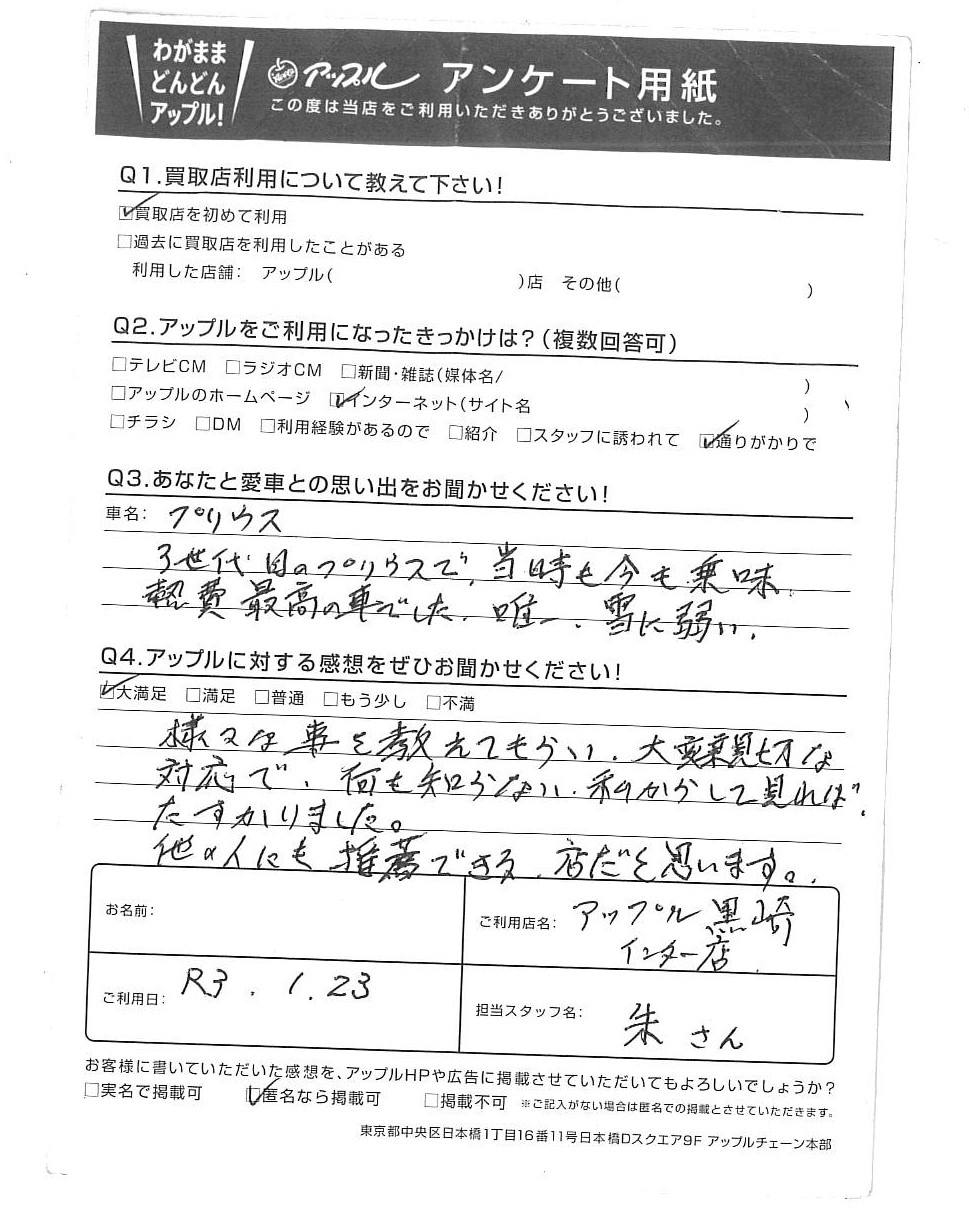 わがまま
どんどん
アップル!
アップル アンケート用紙
この度は当店をご利用いただきありがとうございました。
Q1.買取店利用について教えて下さい!
☑買取店を初めて利用
□過去に買取店を利用したことがある
利用した店舗: アップル( )店 その他( )
Q2.アップルをご利用になったきっかけは?(複数回答可)
□テレビCM □ラジオCM □新聞・雑誌(媒体名/ )
□アップルのホームページ ☑インターネット(サイト名 )
□チラシ □DM □利用経験があるので □紹介 □スタッフに誘われて ☑通りがかりで
Q3.あなたと愛車との思い出をお聞かせください!
車名: プリウス
3世代目のプリウスで、当時も今も乗味、
燃費最高の車でした。唯一、雪に弱い。
Q4.アップルに対する感想をぜひお聞かせください!
☑大満足 □満足 □普通 □もう少し □不満
様々な事を教えてもらい、大変親切な
対応で、何も知らない私からして見れば、
たすかりました。
他の人にも推薦できる、店だと思います。
お名前:
ご利用店名: アップル黒崎
インター店
ご利用日: R3.1.23
担当スタッフ名: 朱さん
お客様に書いていただいた感想を、アップルHPや広告に掲載させていただいてもよろしいでしょうか?
□実名で掲載可 ☑匿名なら掲載可 □掲載不可 ※ご記入がない場合は匿名での掲載とさせていただきます。
東京都中央区日本橋1丁目16番11号日本橋Dスクエア9F アップルチェーン本部